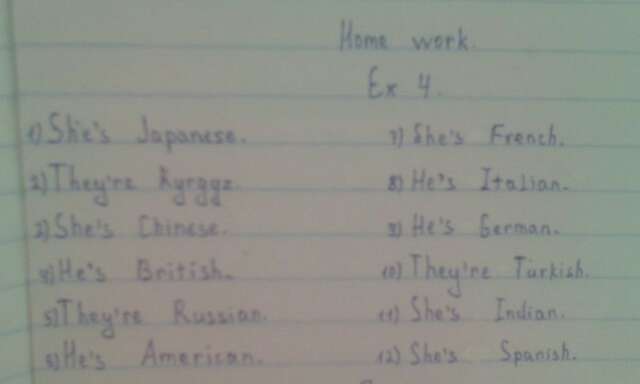 Home work.
Ex 4.
1) She's Japanese.
2) They're Kyrgyz.
3) She's Chinese.
4) He's British.
5) They're Russian.
6) He's American.
7) She's French.
8) He's Italian.
9) He's German.
10) They're Turkish.
11) She's Indian.
12) She's Spanish.